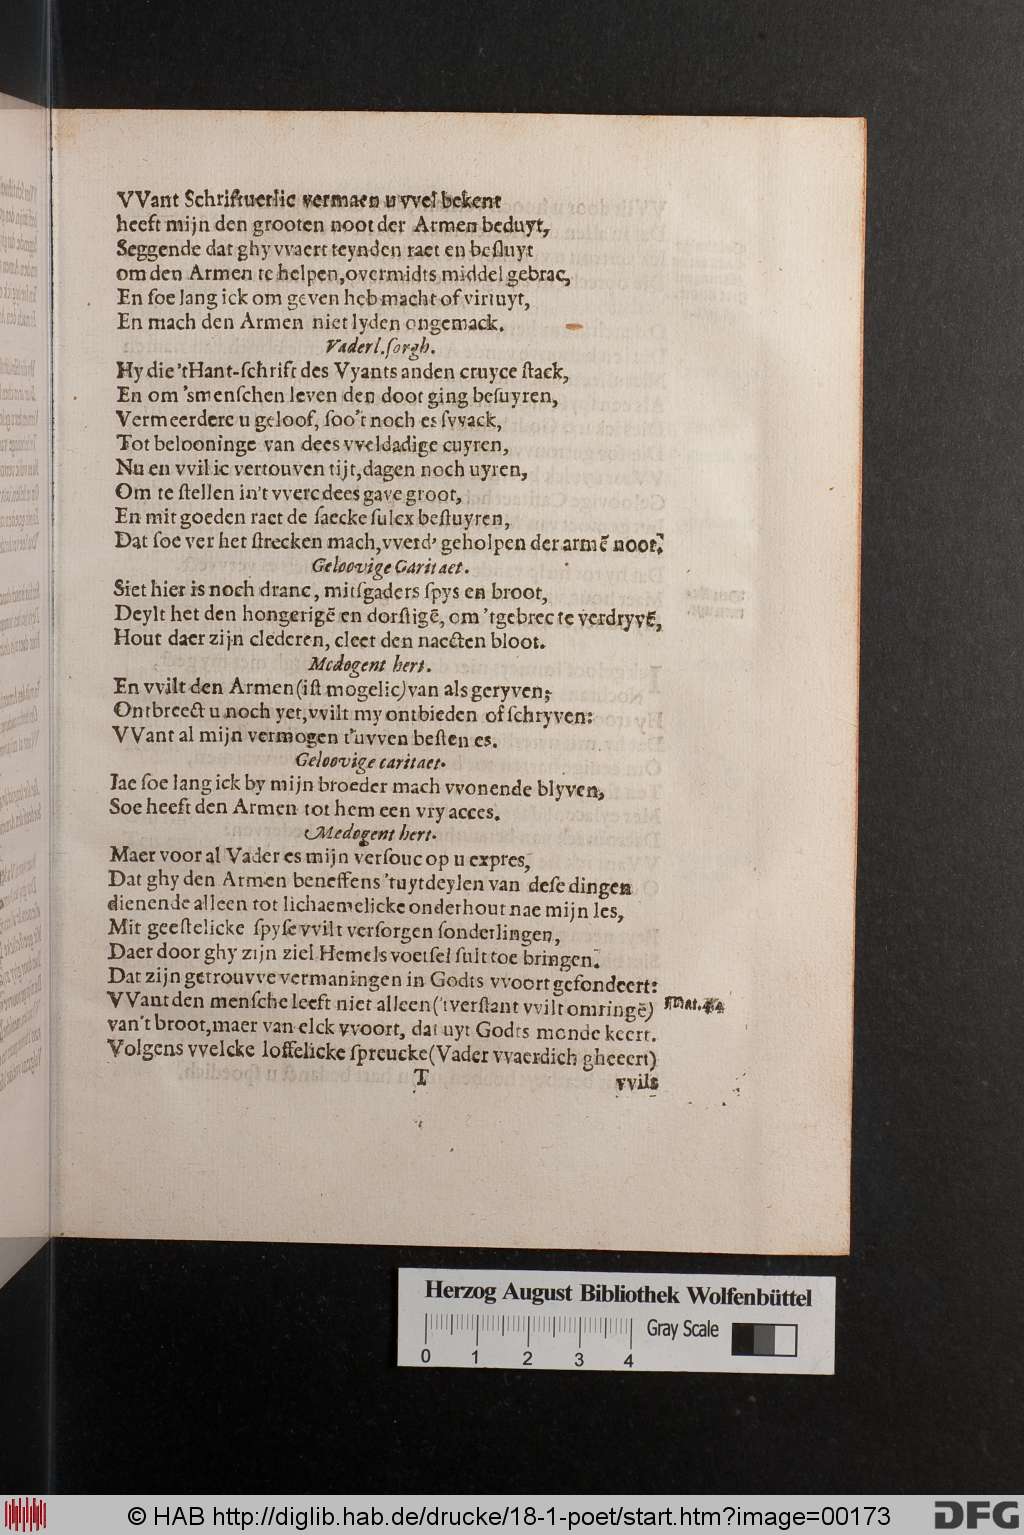 VVant Schriftuerlic vermaen u vvel bekent
heeft mijn den grooten noot der Armen beduyt,
Seggende dat ghy vvaert teynden raet en besluyt
om den Armen te helpen, overmidts middel gebrac,
En soe lang ick om geven heb macht of virtuyt,
En mach den Armen niet lyden ongemack.
Vaderl. sorgh.
Hy die 'tHant-schrift des Vyants anden cruyce stack,
En om 'smenschen leven den doot ging besuyren,
Vermeerdere u geloof, soo't noch es svvack,
Tot belooninge van dees vveldadige cuyren,
Nu en vvil ic vertouven tijt, dagen noch uyren,
Om te stellen in't vverc dees gave groot,
En mit goeden raet de saecke sulcx bestuyren,
Dat soe ver het strecken mach, vverd' geholpen der armē noot.
Geloovige Caritaet.
Siet hier is noch dranc, mitsgaders spys en broot,
Deylt het den hongerigē en dorstigē, om 'tgebrec te verdryvē,
Hout daer zijn clederen, cleet den naecten bloot.
Medogent hert.
En vvilt den Armen (ist mogelic) van als geryven;
Ontbreect u noch yet, vvilt my ontbieden of schryven:
VVant al mijn vermogen t'uvven besten es.
Geloovige caritaet.
Iae soe lang ick by mijn broeder mach vvonende blyven,
Soe heeft den Armen tot hem een vry acces.
Medogent hert.
Maer voor al Vader es mijn versouc op u expres,
Dat ghy den Armen beneffens 'tuytdeylen van dese dingen
dienende alleen tot lichaemelicke onderhout nae mijn les,
Mit geestelicke spyse vvilt versorgen sonderlingen,
Daer door ghy zijn ziel Hemels voetsel sult toe bringen.
Dat zijn getrouvve vermaningen in Godts vvoort gefondeert:
VVant den mensche leeft niet alleen ('tverstant vvilt omringē) Mat. 4.
van't broot, maer van elck vvoort, dat uyt Godts monde keert.
Volgens vvelcke loffelicke spreucke (Vader vvaerdich gheeert)
T vvils
Herzog August Bibliothek Wolfenbüttel
Gray Scale
0 1 2 3 4
© HAB http://diglib.hab.de/drucke/18-1-poet/start.htm?image=00173
DFG